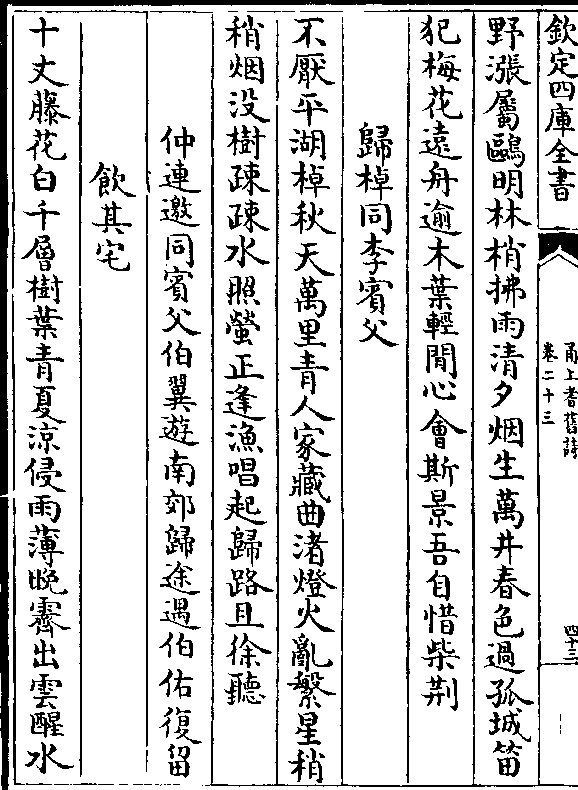 欽定四庫全書
甬上耆舊詩
卷二十三
四十三
野漲屬鷗明林梢拂雨清夕烟生萬井春色過孤城笛
犯梅花遠舟逾木葉輕閒心會斯景吾自惜柴荆
歸棹同李賓父
不厭平湖棹秋天萬里青人家藏曲渚燈火亂繁星稍
稍烟没樹疎疎水照螢正逢漁唱起歸路且徐聽
仲連邀同賓父伯翼遊南郊歸途遇伯佑復留
飲其宅
十丈藤花白千層樹葉青夏涼侵雨薄晚霽出雲醒水